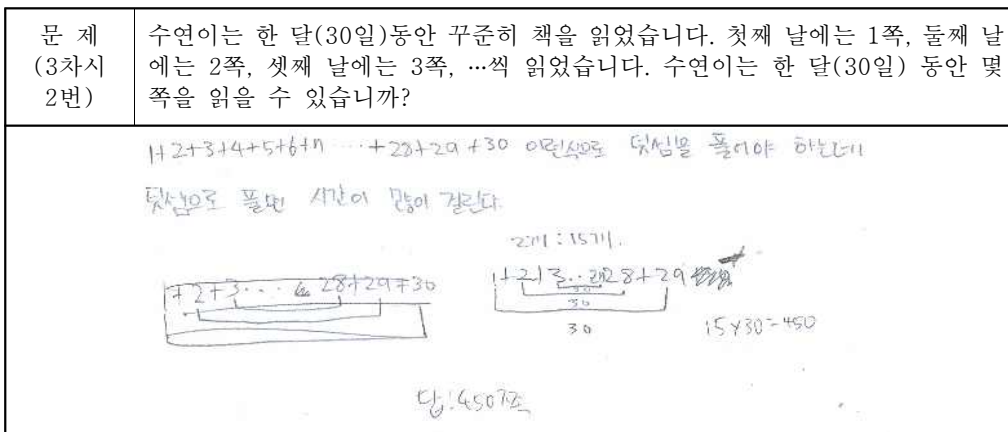 문 제
(3차시
2번)
수연이는 한 달(30일)동안 꾸준히 책을 읽었습니다. 첫째 날에는 1쪽, 둘째 날
에는 2쪽, 셋째 날에는 3쪽, …씩 읽었습니다. 수연이는 한 달(30일) 동안 몇
쪽을 읽을 수 있습니까?
1+2+3+4+5+6+7 … +28+29+30 이런식으로 덧셈을 풀어야 하는데
덧셈으로 풀면 시간이 많이 걸린다.
2개 : 15개.
1+2+3 … 28+29+30
1+2+3 … 28+29
30
30
30
15×30=450
답:450쪽